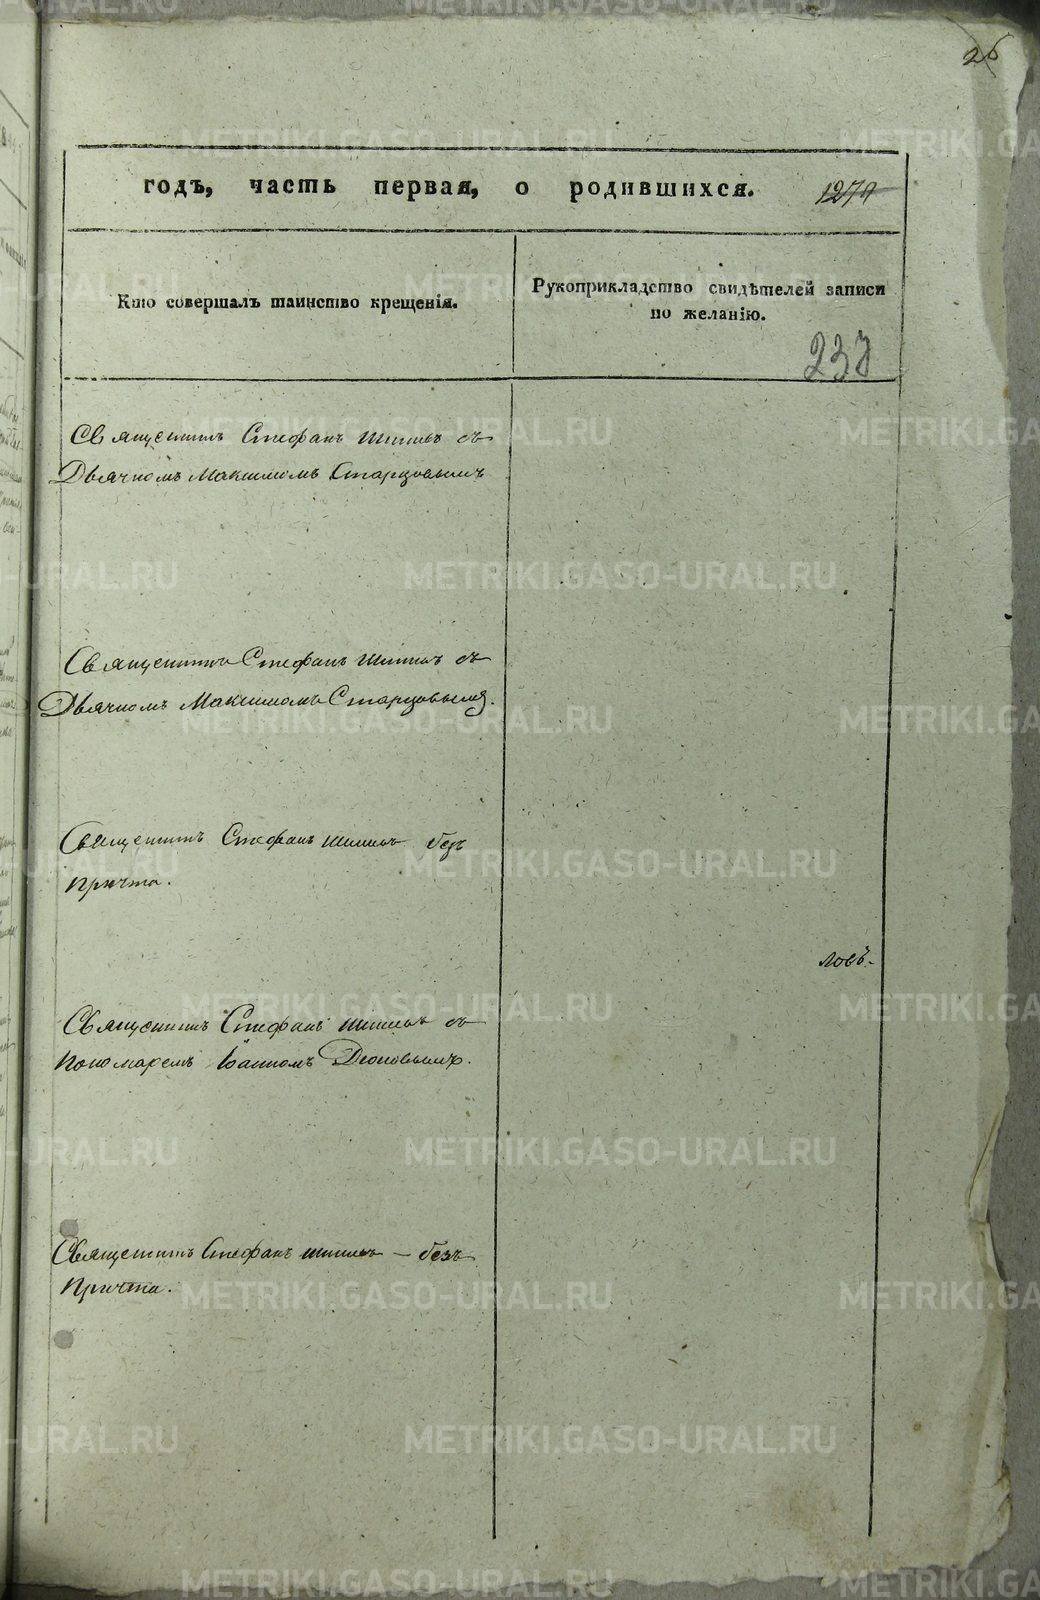 26
годъ, часть первая, о родившихся. 1279
Кто совершалъ таинство крещенія.
Рукоприкладство свидѣтелей записи
по желанію.
237
Священникъ Стефанъ Шишевъ съ
Дьячкомъ Максимомъ Старцовымъ
Священникъ Стефанъ Шишевъ съ
Дьячкомъ Максимомъ Старцовымъ.
Священникъ Стефанъ Шишевъ безъ
причта.
ловъ.
Священникъ Стефанъ Шишевъ съ
Пономаремъ Іоанномъ
Священникъ Стефанъ Шишевъ – безъ
Причта.
METRIKI.GASO-URAL.RU